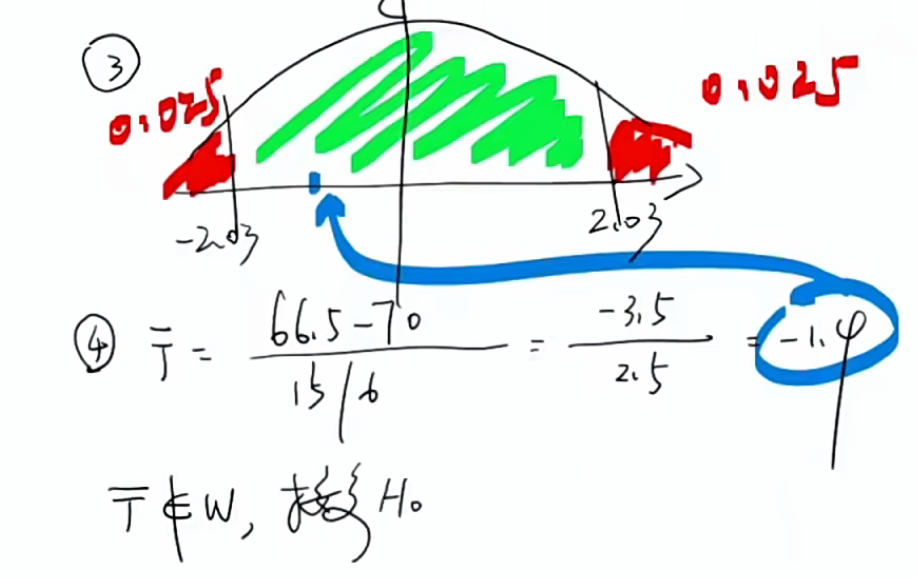 ③
0.025
0.025
-2.03
2.03
④ T̅ = (66.5-70)/(15/6) = -3.5/2.5 = -1.4
T̅ ∉ W, 接受 H₀